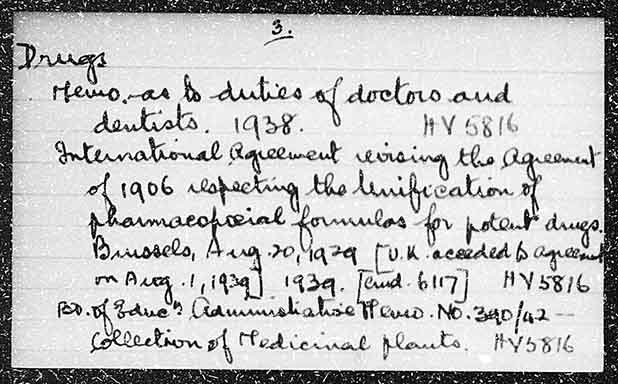 3.
Drugs
Memo. as to duties of doctors and
dentists. 1938. HV 5816
International Agreement revising the Agreement
of 1906 respecting the Unification of
pharmacopoeial formulas for potent drugs.
Brussels, Aug. 20, 1929 [U.K. acceded to agreement
on Aug. 1, 1939] 1939. [cmd. 6117] HV 5816
Bd. of Educn Administrative Memo. No. 340/42 —
Collection of Medicinal plants. HV5816